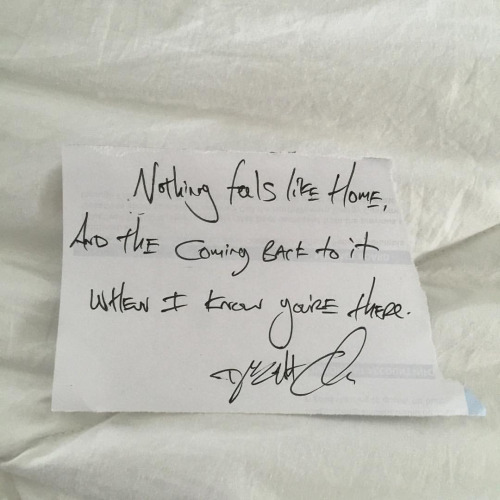 Nothing feels like Home,
AND tHE Coming BACK to it
WHEN I know you'RE tHERE.